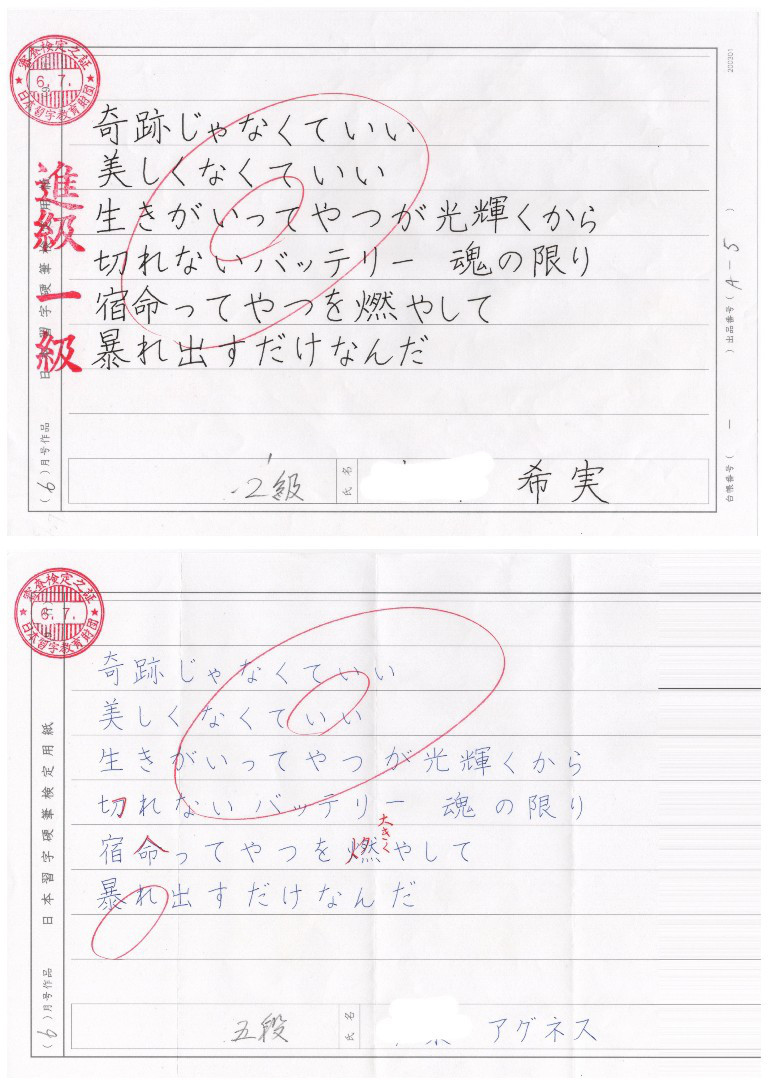 審査検定之証
6.7.
日本習字教育財団
進級一級
日本習字硬筆検定用紙
(6)月号作品
奇跡じゃなくていい
美しくなくていい
生きがいってやつが光輝くから
切れないバッテリー 魂の限り
宿命ってやつを燃やして
暴れ出すだけなんだ
2級
氏名
希実
200301
出品番号(A-5)
台帳番号(一
審査検定之証
6.7.
日本習字教育財団
日本習字硬筆検定用紙
(6)月号作品
奇跡じゃなくていい
美しくなくていい
生きがいってやつが光輝くから
切れないバッテリー 魂の限り
大きく
宿命ってやつを燃やして
暴れ出すだけなんだ
五段
氏名
アグネス